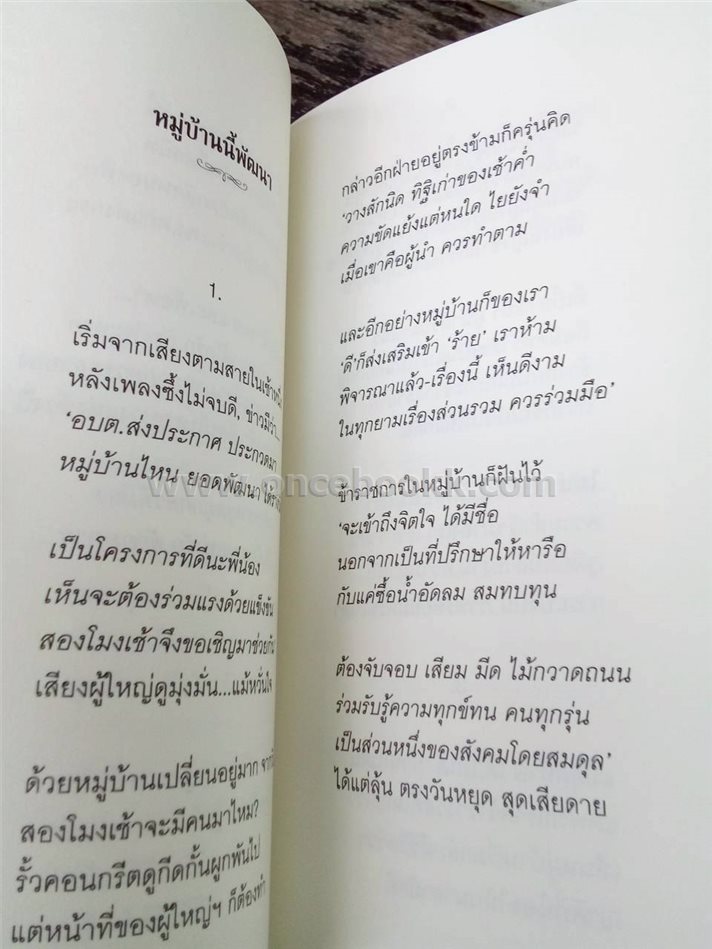 หมู่บ้านนี้พัฒนา
1.
เริ่มจากเสียงตามสายในเช้า
หลังเพลงซึ้งไม่จบดี, ข่าวมีว่า...
‘อบต.ส่งประกาศ ประกวดมา
หมู่บ้านไหน ยอดพัฒนา
เป็นโครงการที่ดีนะพี่น้อง
เห็นจะต้องร่วมแรงด้วยแข็งขัน
สองโมงเช้าจึงขอเชิญมาช่วยกัน
เสียงผู้ใหญ่ดูมุ่งมั่น...แม้หวั่นใจ
ด้วยหมู่บ้านเปลี่ยนอยู่มาก
สองโมงเช้าจะมีคนมาไหม?
รั้วคอนกรีตดูกีดกั้นผูกพันไป
แต่หน้าที่ของผู้ใหญ่ฯ ก็ต้องทำ
กล่าวอีกฝ่ายอยู่ตรงข้ามก็ครุ่นคิด
‘วางสักนิด ทิฐิเก่าของเช้าค่ำ
ความขัดแย้งแต่หนใด ไยยังจำ
เมื่อเขาคือผู้นำ ควรทำตาม
และอีกอย่างหมู่บ้านก็ของเรา
‘ดี’ก็ส่งเสริมเข้า ‘ร้าย’ เราห้าม
พิจารณาแล้ว-เรื่องนี้ เห็นดีงาม
ในทุกยามเรื่องส่วนรวม ควรร่วมมือ’
ข้าราชการในหมู่บ้านก็ฝันไว้
‘จะเข้าถึงจิตใจ ได้มีชื่อ
นอกจากเป็นที่ปรึกษาให้หารือ
กับแค่ซื้อน้ำอัดลม สมทบทุน
ต้องจับจอบ เสียม มีด ไม้กวาดถนน
ร่วมรับรู้ความทุกข์ทน คนทุกรุ่น
เป็นส่วนหนึ่งของสังคมโดยสมดุล’
ได้แต่ลุ้น ตรงวันหยุด สุดเสียดาย
www.oncebookk.com